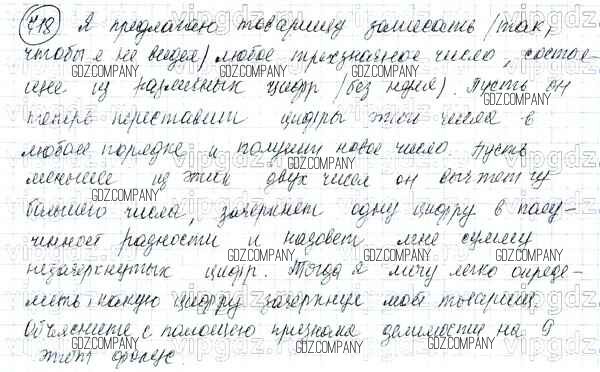 718 Я предлагаю товарищу записать /так,
чтобы я не видел/ любое трехзначное число, состоя-
щее из различных цифр /без нуля/. Пусть он
GDZ.COMPANY GDZ.COMPANY GDZ.COMPANY
теперь переставит цифры этого числа в
любом порядке и получит новое число. Пусть
GDZ.COMPANY
меньшее из этих двух чисел он вычтет из
GDZ.COMPANY
большего числа, зачеркнет одну цифру в полу-
ченной разности и назовет мне сумму
незачеркнутых цифр. Тогда я могу легко опреде-
GDZ.COMPANY GDZ.COMPANY GDZ.COMPANY
лить, какую цифру зачеркнул мой товарищ.
Объясните с помощью признака делимости на 9
этот фокус.
GDZ.COMPANY GDZ.COMPANY